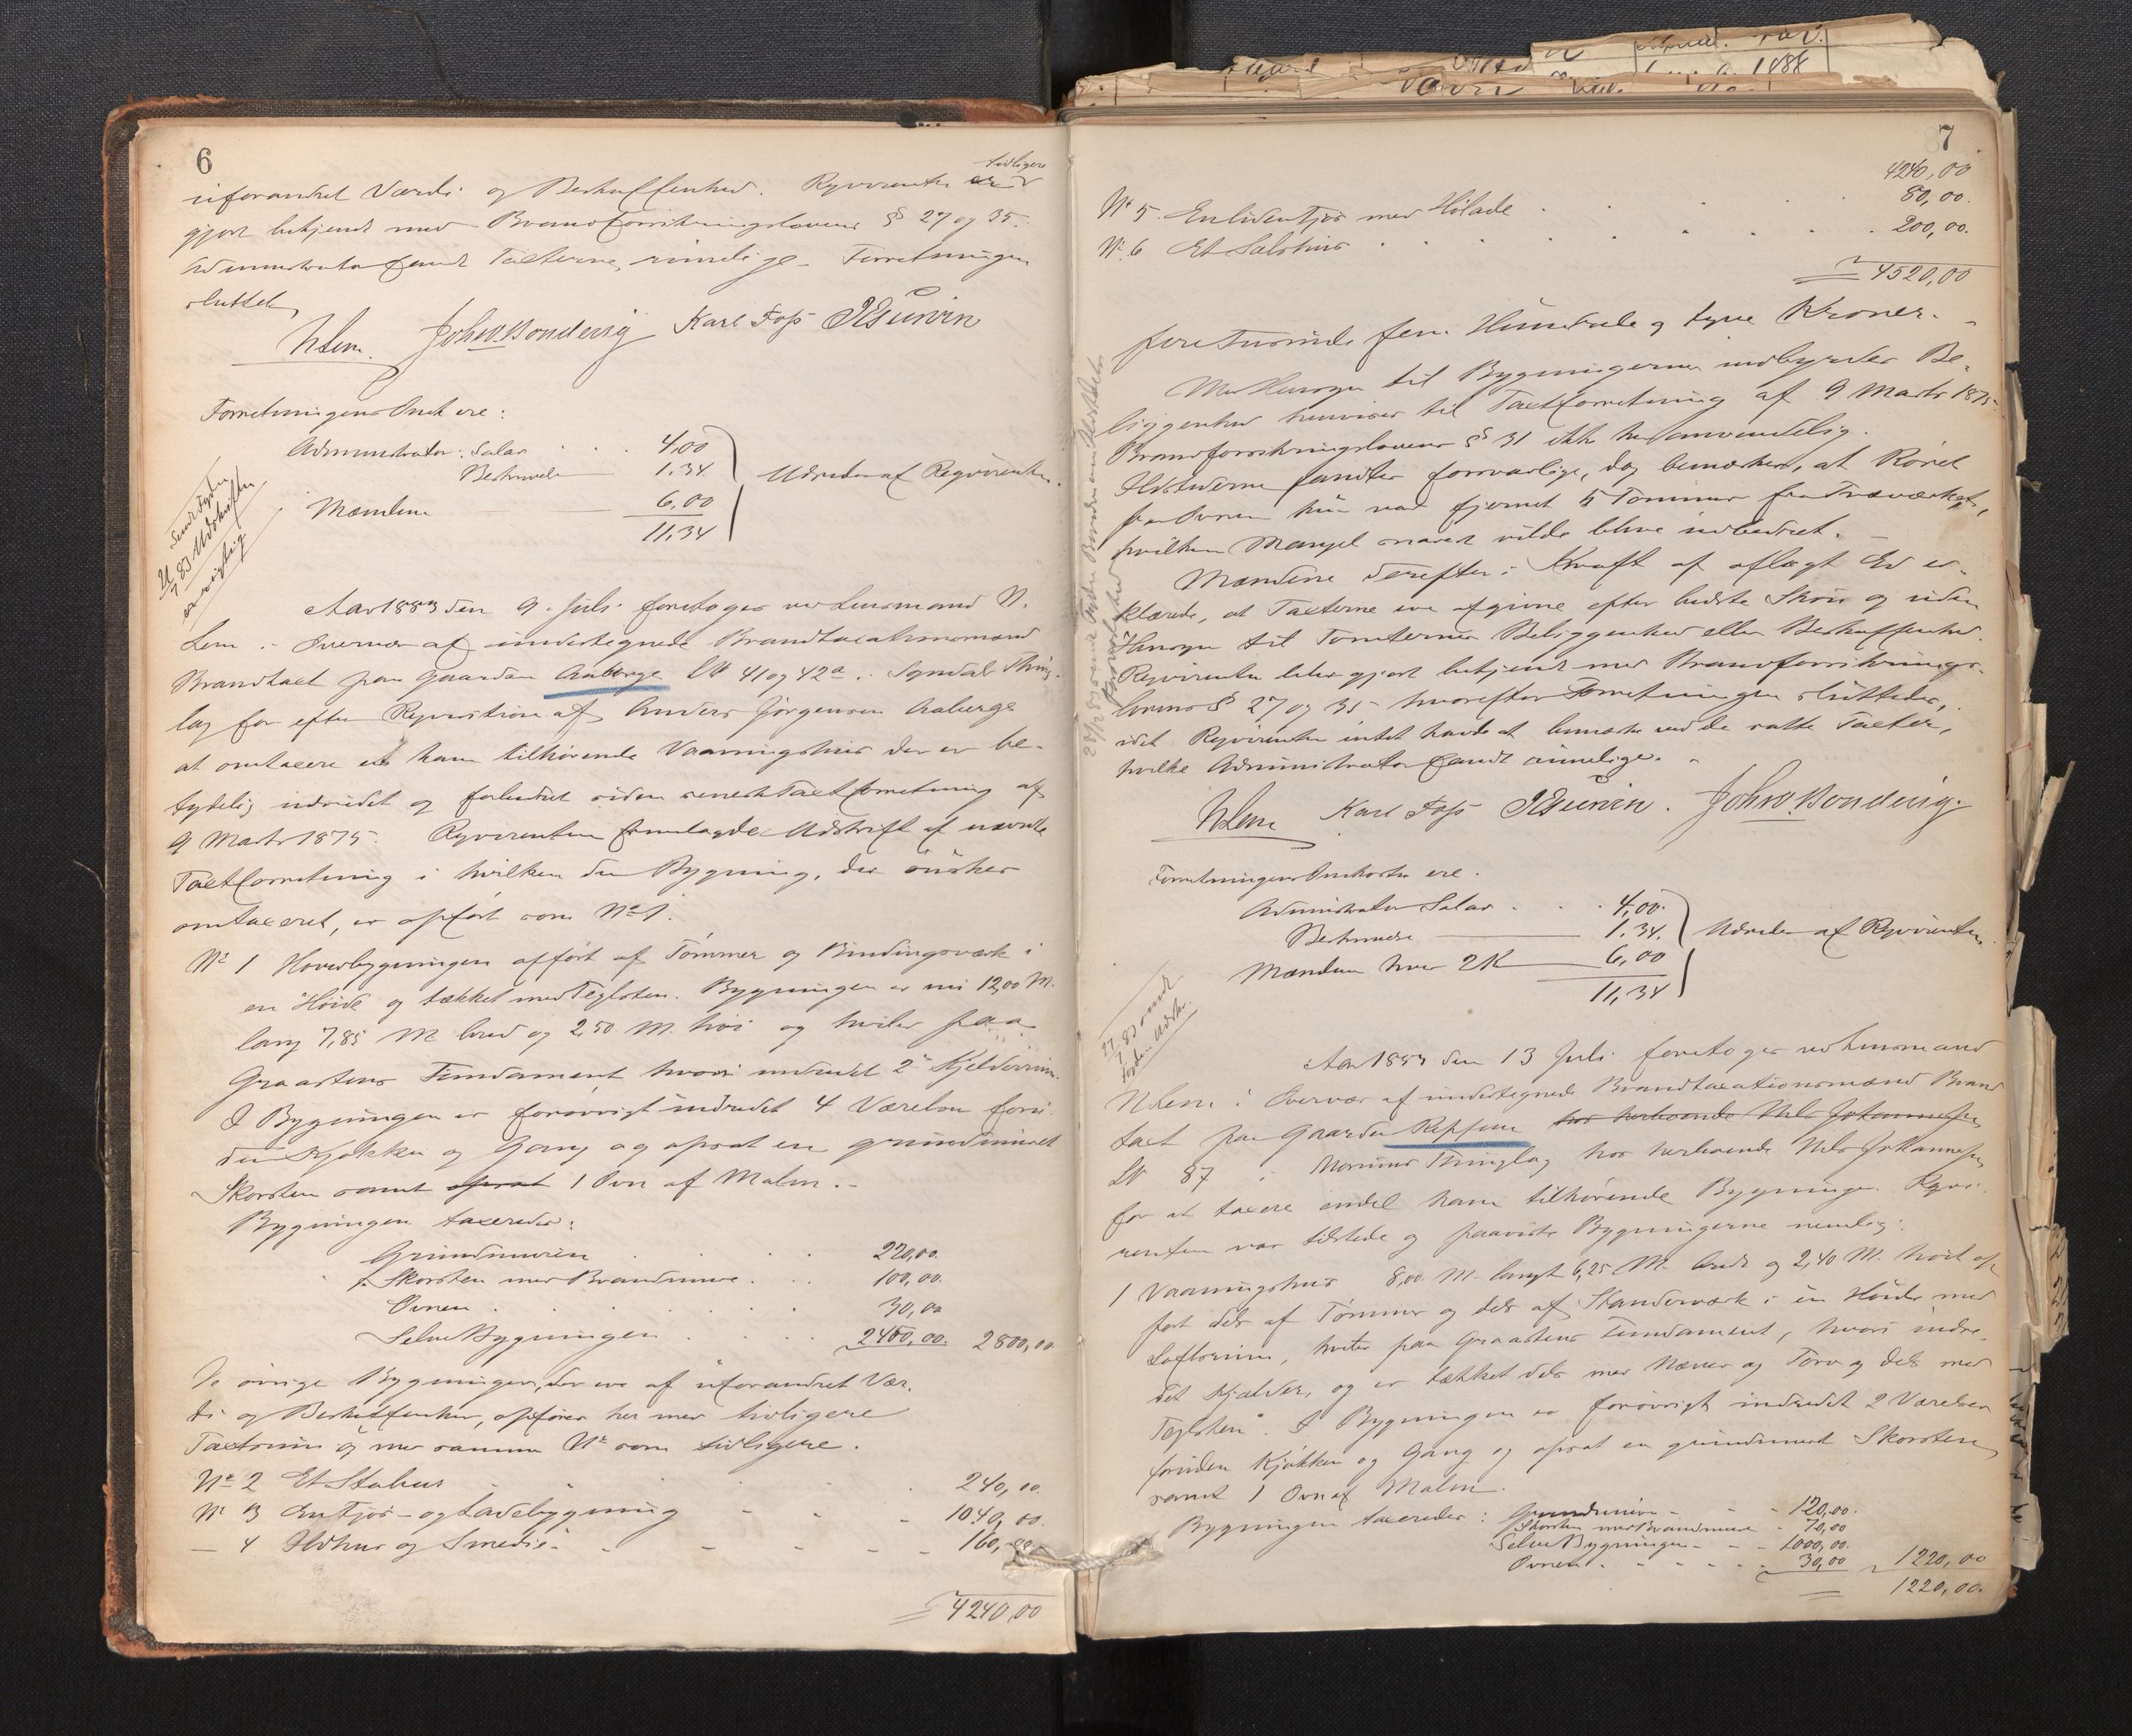 6
uforandret Værdi og Beskaffenhed. Reqvirenten er tidligere
gjort bekjendt med Brandforsikringslovens §§ 27 og 35.
Administrator fandt Taxterne rimelige. Forretningen
sluttet
NLem. Joh W Bonderig Karl Foss
Forretningens Omk ere:
Administrator: Salar . . 4,00
Beskrivelse 1.34.
Udredes af Reqvirenten.
Mændene 6,00
11,34
21/7 83 Udskriften
Aar 1883 den 9. Juli foretoges ved Lensmand N.
Lem i Overvær af undertegnede Brandtaxationsmænd
Brandtaxt paa Gaarden Aaberge LN 41 og 42a i Syndal Thing-
lag for efter Reqvisition af Anders Jørgensen Aaberge
at omtaxere et ham tilhørende Vaaningshus der er be-
tydelig udvidet og forbedret siden seneste Taxtforretning af
9 Marts 1875. Reqvirenten fremlagde Udskrift af nævnte
Taxtforretning i hvilken den Bygning, der ønskes
omtaxeret, er opført som No 1.
No 1 Hovedbygningen opført af Tømmer og Bindingsværk i
en Høide og tækket med Teglsten. Bygningen er nu 12,00 M.
lang 7,85 M. bred og 2,50 M. høi og hviler paa
Graastens Fundament hvori indredet 2 Kjelderrum.
I Bygningen er forøvrigt indredet 4 Værelser foru-
den Kjøkken og Gang og opsat en grundmuret
Skorsten samt opsat 1 Ovn af Malm.-
Bygningen taxeredes:
Grundmuren . . . 220,00.
Skorsten med Brandmure . . 100,00.
Ovnen . . . . 30,00
Selve Bygningen . . . 2450,00. 2800,00
De øvrige Bygninger, der ere af uforandret Vær-
di og Beskaffenhed, opføres her med tidligere
Taxtsum og med samme No som tidligere.
No 2 Et Stabur . . . 240,00.
No 3 En Fjøs- og Ladebygning - - - 1040,00.
- 4 Ildhus og Smedie - - - - 160,00
4240,00
7
4240,00
No 5. En liden Fjøs med Hølade . . . . 80,00.
No 6 Et Saltshus . . . . 200,00.
4520,00
fire Tusinde fem Hundrede og tyve Kroner.
Med Hensyn til Bygningernes indbyrdes Be-
liggenhed henvises til Taxtforretning af 9 Marts 1875.
Brandforsikringslovens §§ 31 ikke her anvendelig.
Ildstederne fandtes forsvarlige, dog bemærkes, at Røret
fra Ovnen kun var fjernet 5 Tommer fra Træværket,
hvilken Mangel snarest vilde blive udbedret.
Mændene derefter i Kraft af aflagt Ed er-
klærede, at Taxterne ere afgivne efter bedste Skjøn og uden
Hensyn til Tomternes Beliggenhed eller Beskaffenhed.
Reqvirenten blev gjort bekjendt med Brandforsikrings-
lovens § 27 og 35 hvorefter Forretningen sluttedes,
idet Reqvirenten intet havde at bemærke ved de satte Taxter,
hvilke Administrator fandt rimelige.
NLem Karl Foss Joh W Bonderig.
Forretningens Omkostn ere.
Administrator Salar . . . 4,00.
Beskrivelse 1.34.
Udredes af Reqvirenten
Mændene hver 2 K 6,00
11,34
27/7 83 sendt
Aar 1883 den 13 Juli foretoges ved Lensmand
NLem i Overvær af undertegnede Brandtaxationsmænd Brand
taxt paa Gaarden Repsem hos herboende Nils Johannesen
LN 87 i Thinglag hos herboende Nils Johannesen
for at taxere endel ham tilhørende Bygninger. Reqvi-
renten var tilstede og paaviste Bygningerne nemlig:
1 Vaaningshus 8,00 M. langt 6,25 M. bredt og 2,40 M. høit op-
ført dels af Tømmer og dels af Standerværk i en Høide med
Loftsrum, hviler paa Graastens Fundament, hvori indre-
det Kjælder, og er tækket dels med Næver og Torv og dels med
Teglsten. I Bygningen er forøvrigt indredet 2 Værelser
foruden Kjøkken og Gang og opsat en grundmuret Skorsten
samt 1 Ovn af Malm.
Bygningen taxeredes: Grundmuren - - - 120,00.
Skorsten med Brandmure - 70,00
Selve Bygningen - - - 1000,00.
Ovnen . - - - 30,00 1220,00
1220,00.